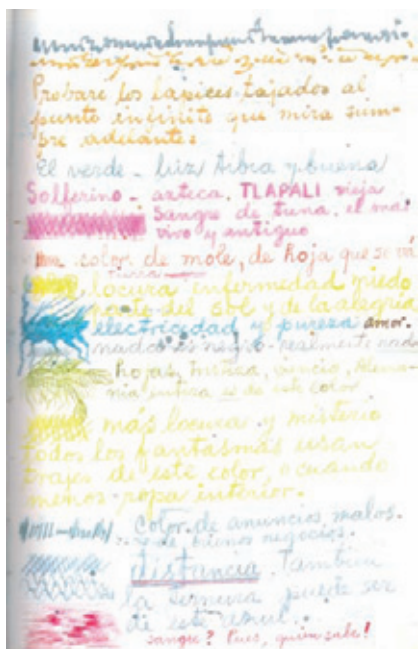 Probaré los lápices tajados al
punto infinito que mira siem-
pre adelante:
El verde - luz tibia y buena
Solferino - azteca. TLAPALI vieja
sangre de tuna, el más
vivo y antiguo
color de mole, de hoja que se va
tierra
locura enfermedad miedo
parte del sol y de la alegría
electricidad y pureza amor.
nada es negro - realmente nada
hojas, tristeza, ciencia, Alema-
nia entera es de este color
más locura y misterio
todos los fantasmas usan
trajes de este color, o cuando
menos ropa interior.
color de anuncios malos.
y de buenos negocios.
distancia. También
la ternura puede ser
de este azul.
sangre? Pues, quien sabe!